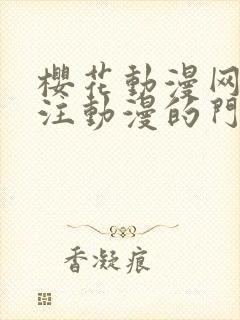 櫻花動漫网
注動漫的門
香凝痕